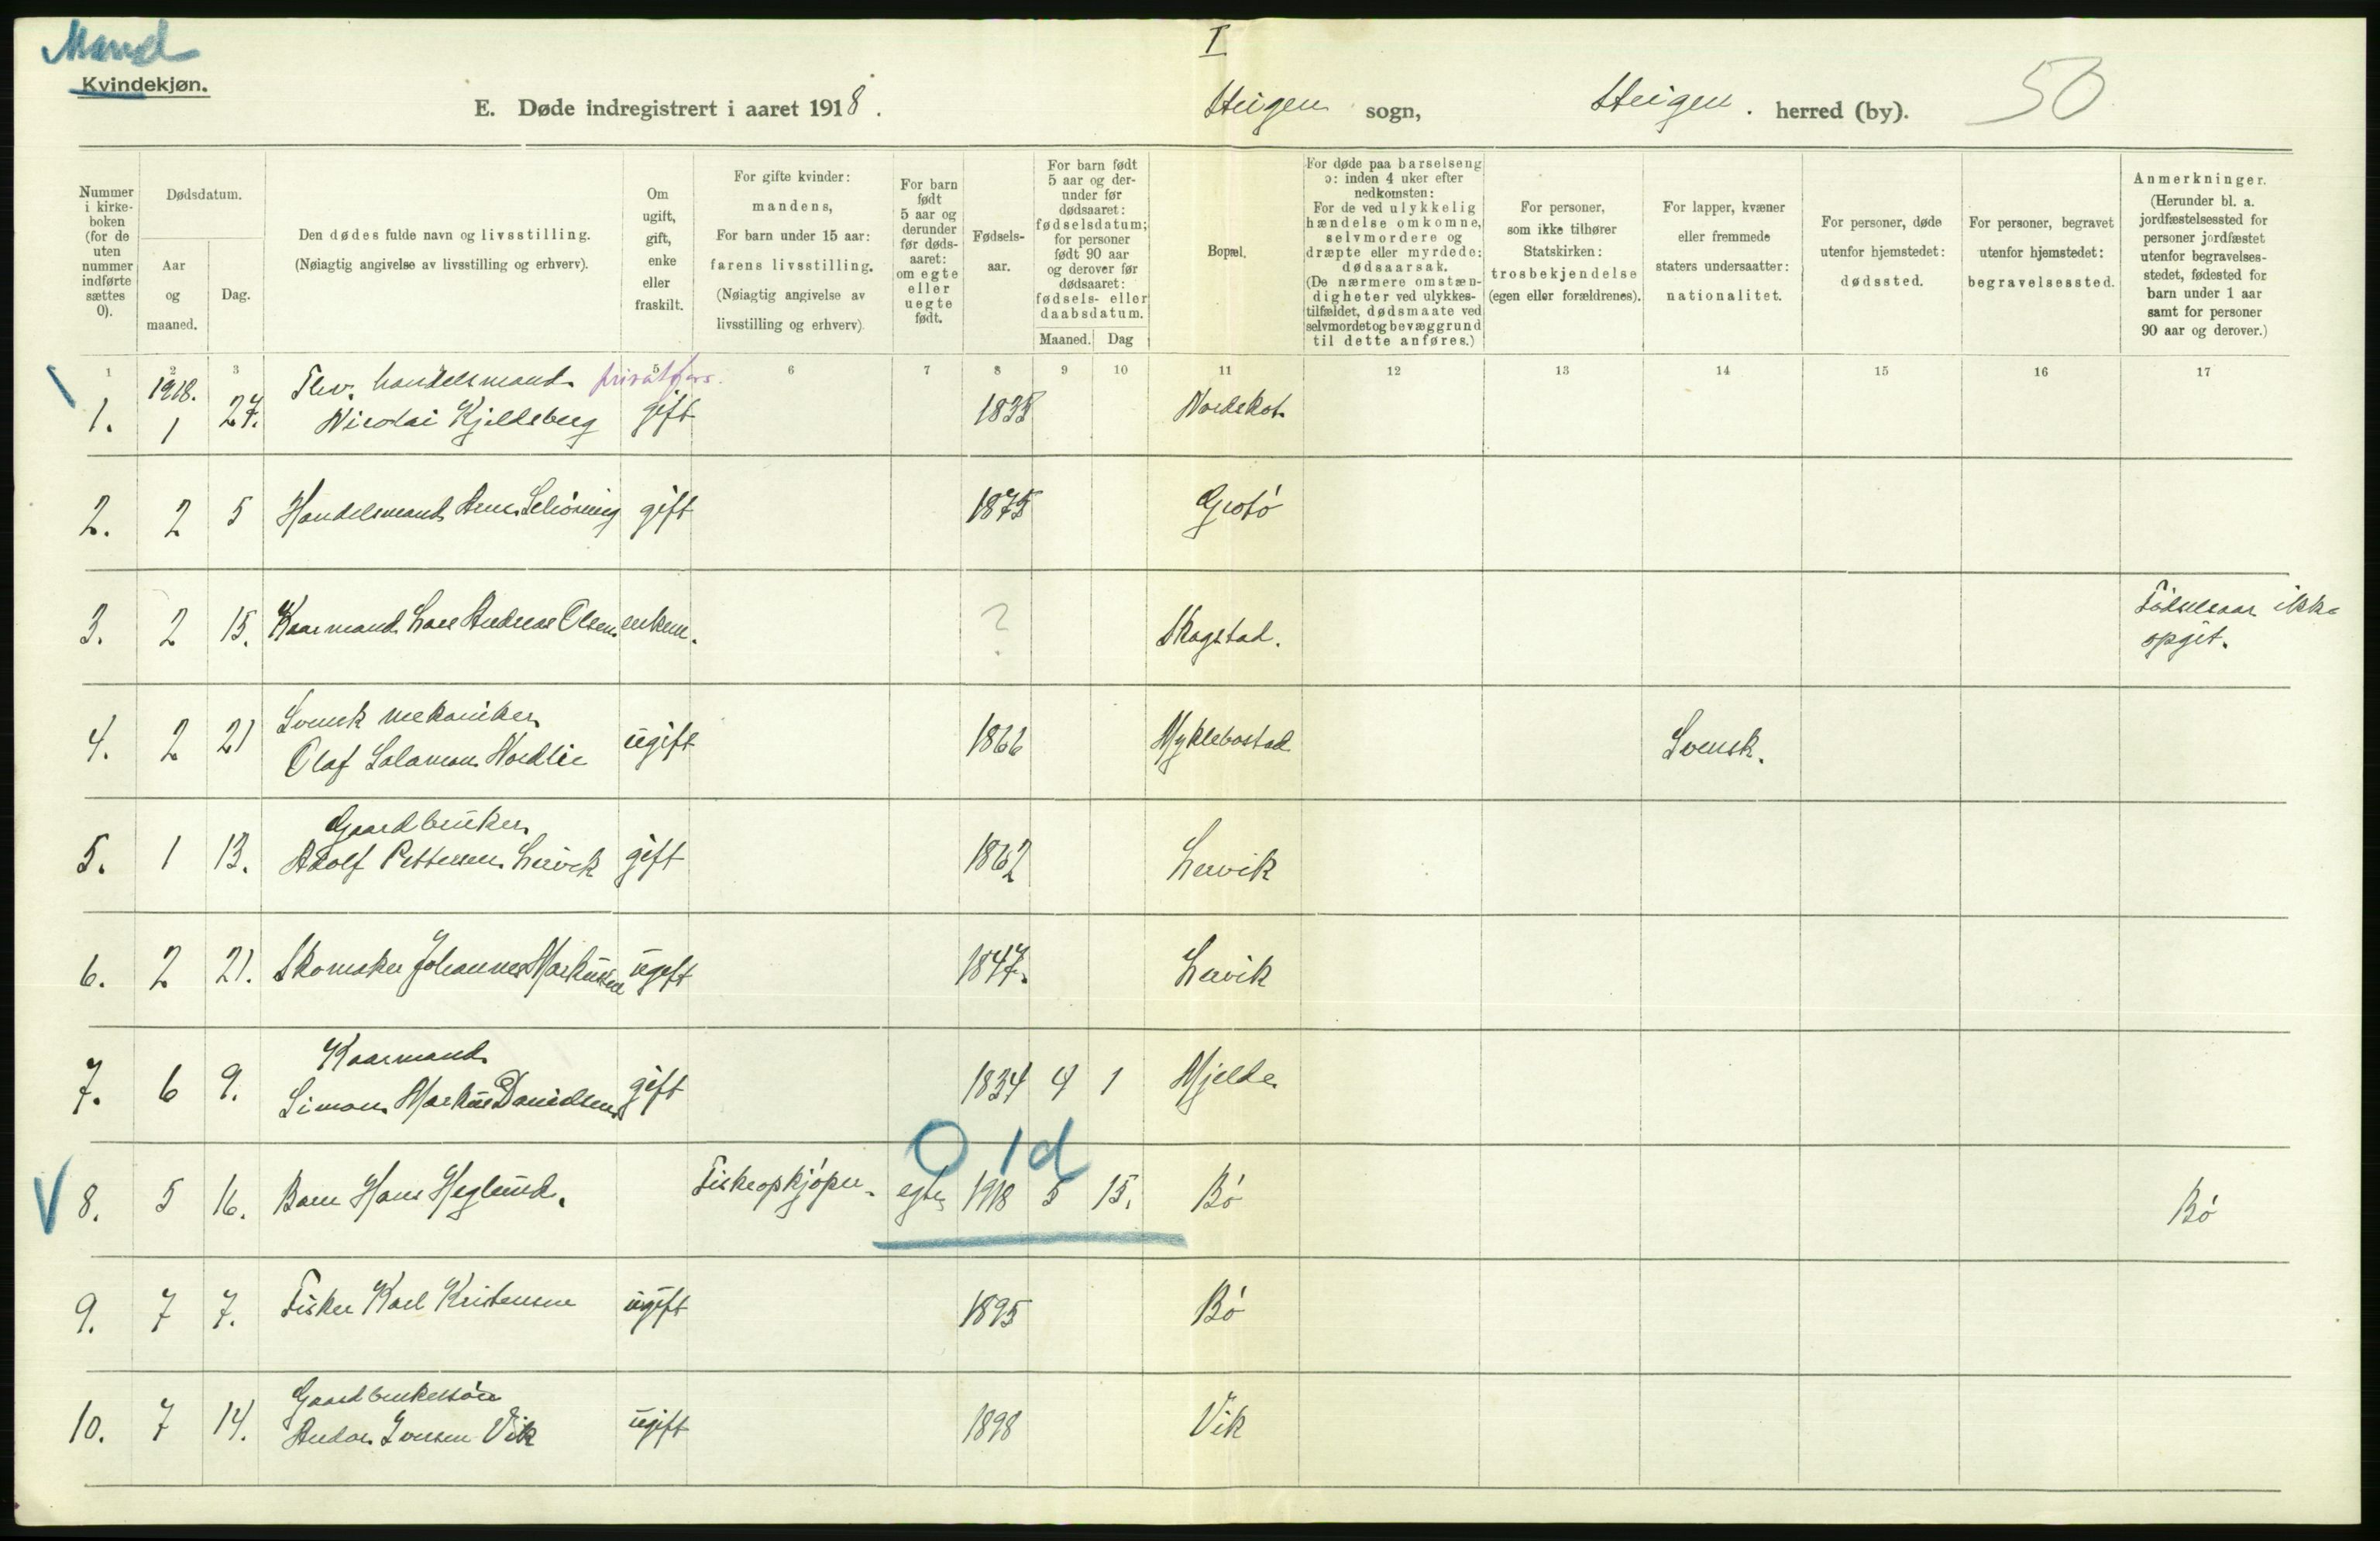 I
Mand
Kvindekjøn.
E. Døde indregistrert i aaret 1918.
Steigen sogn,
Steigen. herred (by).
50
Nummer i kirkeboken (for de uten nummer indførte sættes 0).
Dødsdatum.
Aar og maaned.
Dag.
Den dødes fulde navn og livsstilling.
(Nøiagtig angivelse av livsstilling og erhverv).
Om ugift, gift, enke eller fraskilt.
For gifte kvinder: mandens,
For barn under 15 aar: farens livsstilling.
(Nøiagtig angivelse av livsstilling og erhverv).
For barn født 5 aar og derunder før dødsaaret: om egte eller uegte født.
Fødselsaar.
For barn født 5 aar og derunder før dødsaaret: fødselsdatum; for personer født 90 aar og derover før dødsaaret: fødsels- eller daabsdatum.
Maaned. Dag
Bopæl.
For døde paa barselseng ɔ: inden 4 uker efter nedkomsten:
For de ved ulykkelig hændelse omkomne, selvmordere og dræpte eller myrdede: dødsaarsak.
(De nærmere omstændigheter ved ulykkestilfældet, dødsmaate ved selvmordet og bevæggrund til dette anføres.)
For personer, som ikke tilhører Statskirken: trosbekjendelse (egen eller forældrenes).
For lapper, kvæner eller fremmede staters undersaatter: nationalitet.
For personer, døde utenfor hjemstedet: dødssted.
For personer, begravet utenfor hjemstedet: begravelsessted.
Anmerkninger.
(Herunder bl. a. jordfæstelsessted for personer jordfæstet utenfor begravelsesstedet, fødested for barn under 1 aar samt for personer 90 aar og derover.)
1 2 3 5 6 7 8 9 10 11 12 13 14 15 16 17
1918. handelsmand
1. 1 27. Nicolai Kjeldsberg gift 1835 Nordskot
2. 2 5 Handelsmand Schöning gift 1875 Grotó
3. 2 15. Kaarmand Lars Andreas Olsen enkem. ? Skagstad. Födselsaar ikke
opgit.
Svensk mekaniker
4. 2 21 Olaf Salamon Nordlie ugift 1866 Myklebostad Svensk.
Gaardbruker
5. 1 13. Adolf Pettersen Leivik gift 1862 Leivik
6. 2 21. Skomaker Johannes Markussen ugift 1847. Leivik
Kaarmand
7. 6 9. Simon Markus Danielsen gift 1834 4 1 Mjelde
0 1d
8. 5 16. Barn Hans Heglund. Fiskeopkjóper egte 1918 5 15. Bó Bó
9. 7 7. Fisker Karl Kristensen ugift 1895 Bó
Gaardbrukersön
10. 7 14. Andor Iversen Vik ugift 1898 Vik